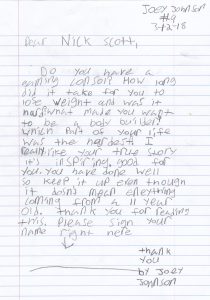 Joey Johnson
#9
3-12-18
Dear Nick Scott,
Do you have a
gaming consol? How long
did it take for you to
lose weight and was it
hard? What made you want
to be a body builder?
Which part of your life
was the hardest? I
really like your true story
it's inspiring, good for
you. You have done well
so keep it up even though
it dosn't mean anything
coming from a 11 year
old. Thank you for reading
this. Please sign your
name right here
Thank
you
by Joey
Johnson